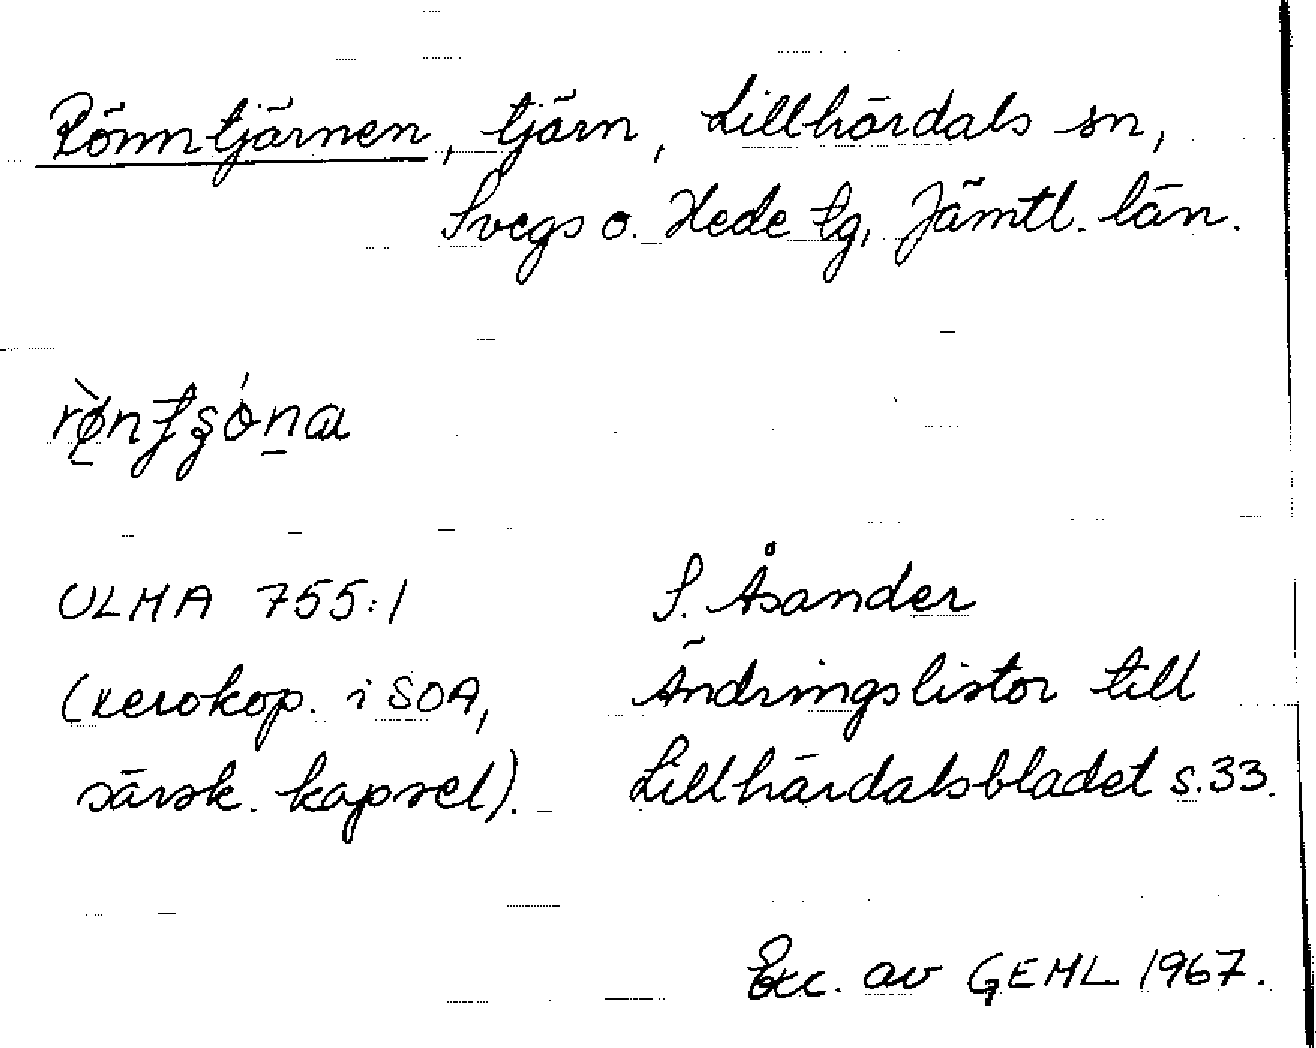 Rönntjärnen, tjärn, Lillhärdals sn,
Svegs o. Hede tg, Jämtl. län.
ULMA 755:1 S. Åsander
(xerokop. i SOA, Ändringslistor till
särsk. kapsel). Lillhärdalsbladet s.33.
Exc. av GEML 1967.